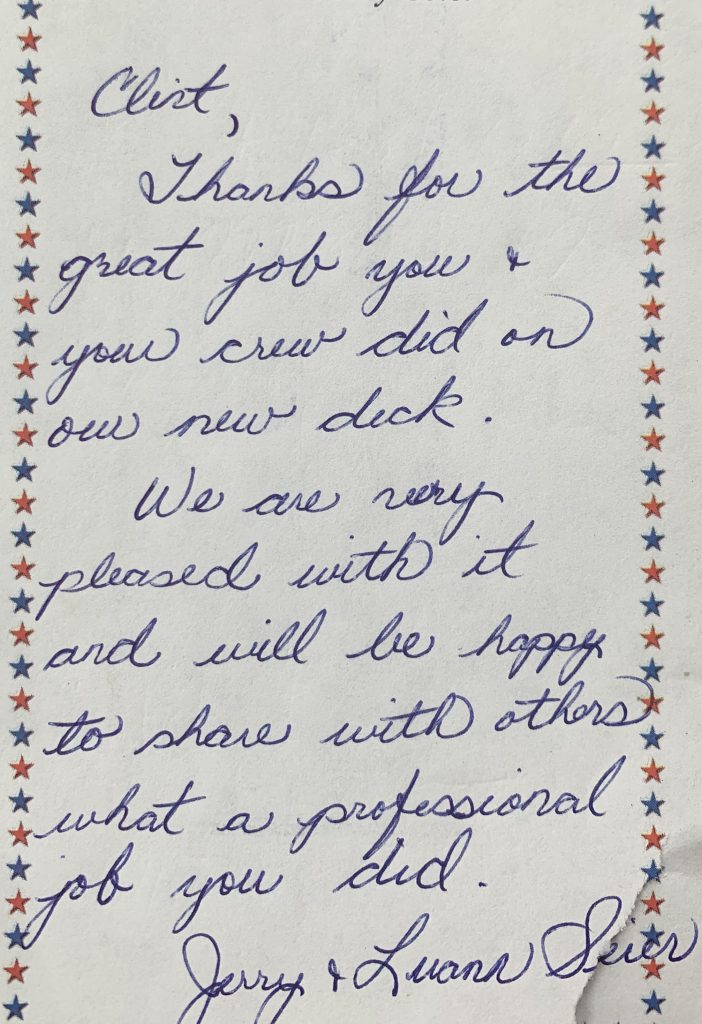 Clint,
Thanks for the
great job you &
your crew did on
our new deck.
We are very
pleased with it
and will be happy
to share with others
what a professional
job you did.
Jerry & Luann Seier